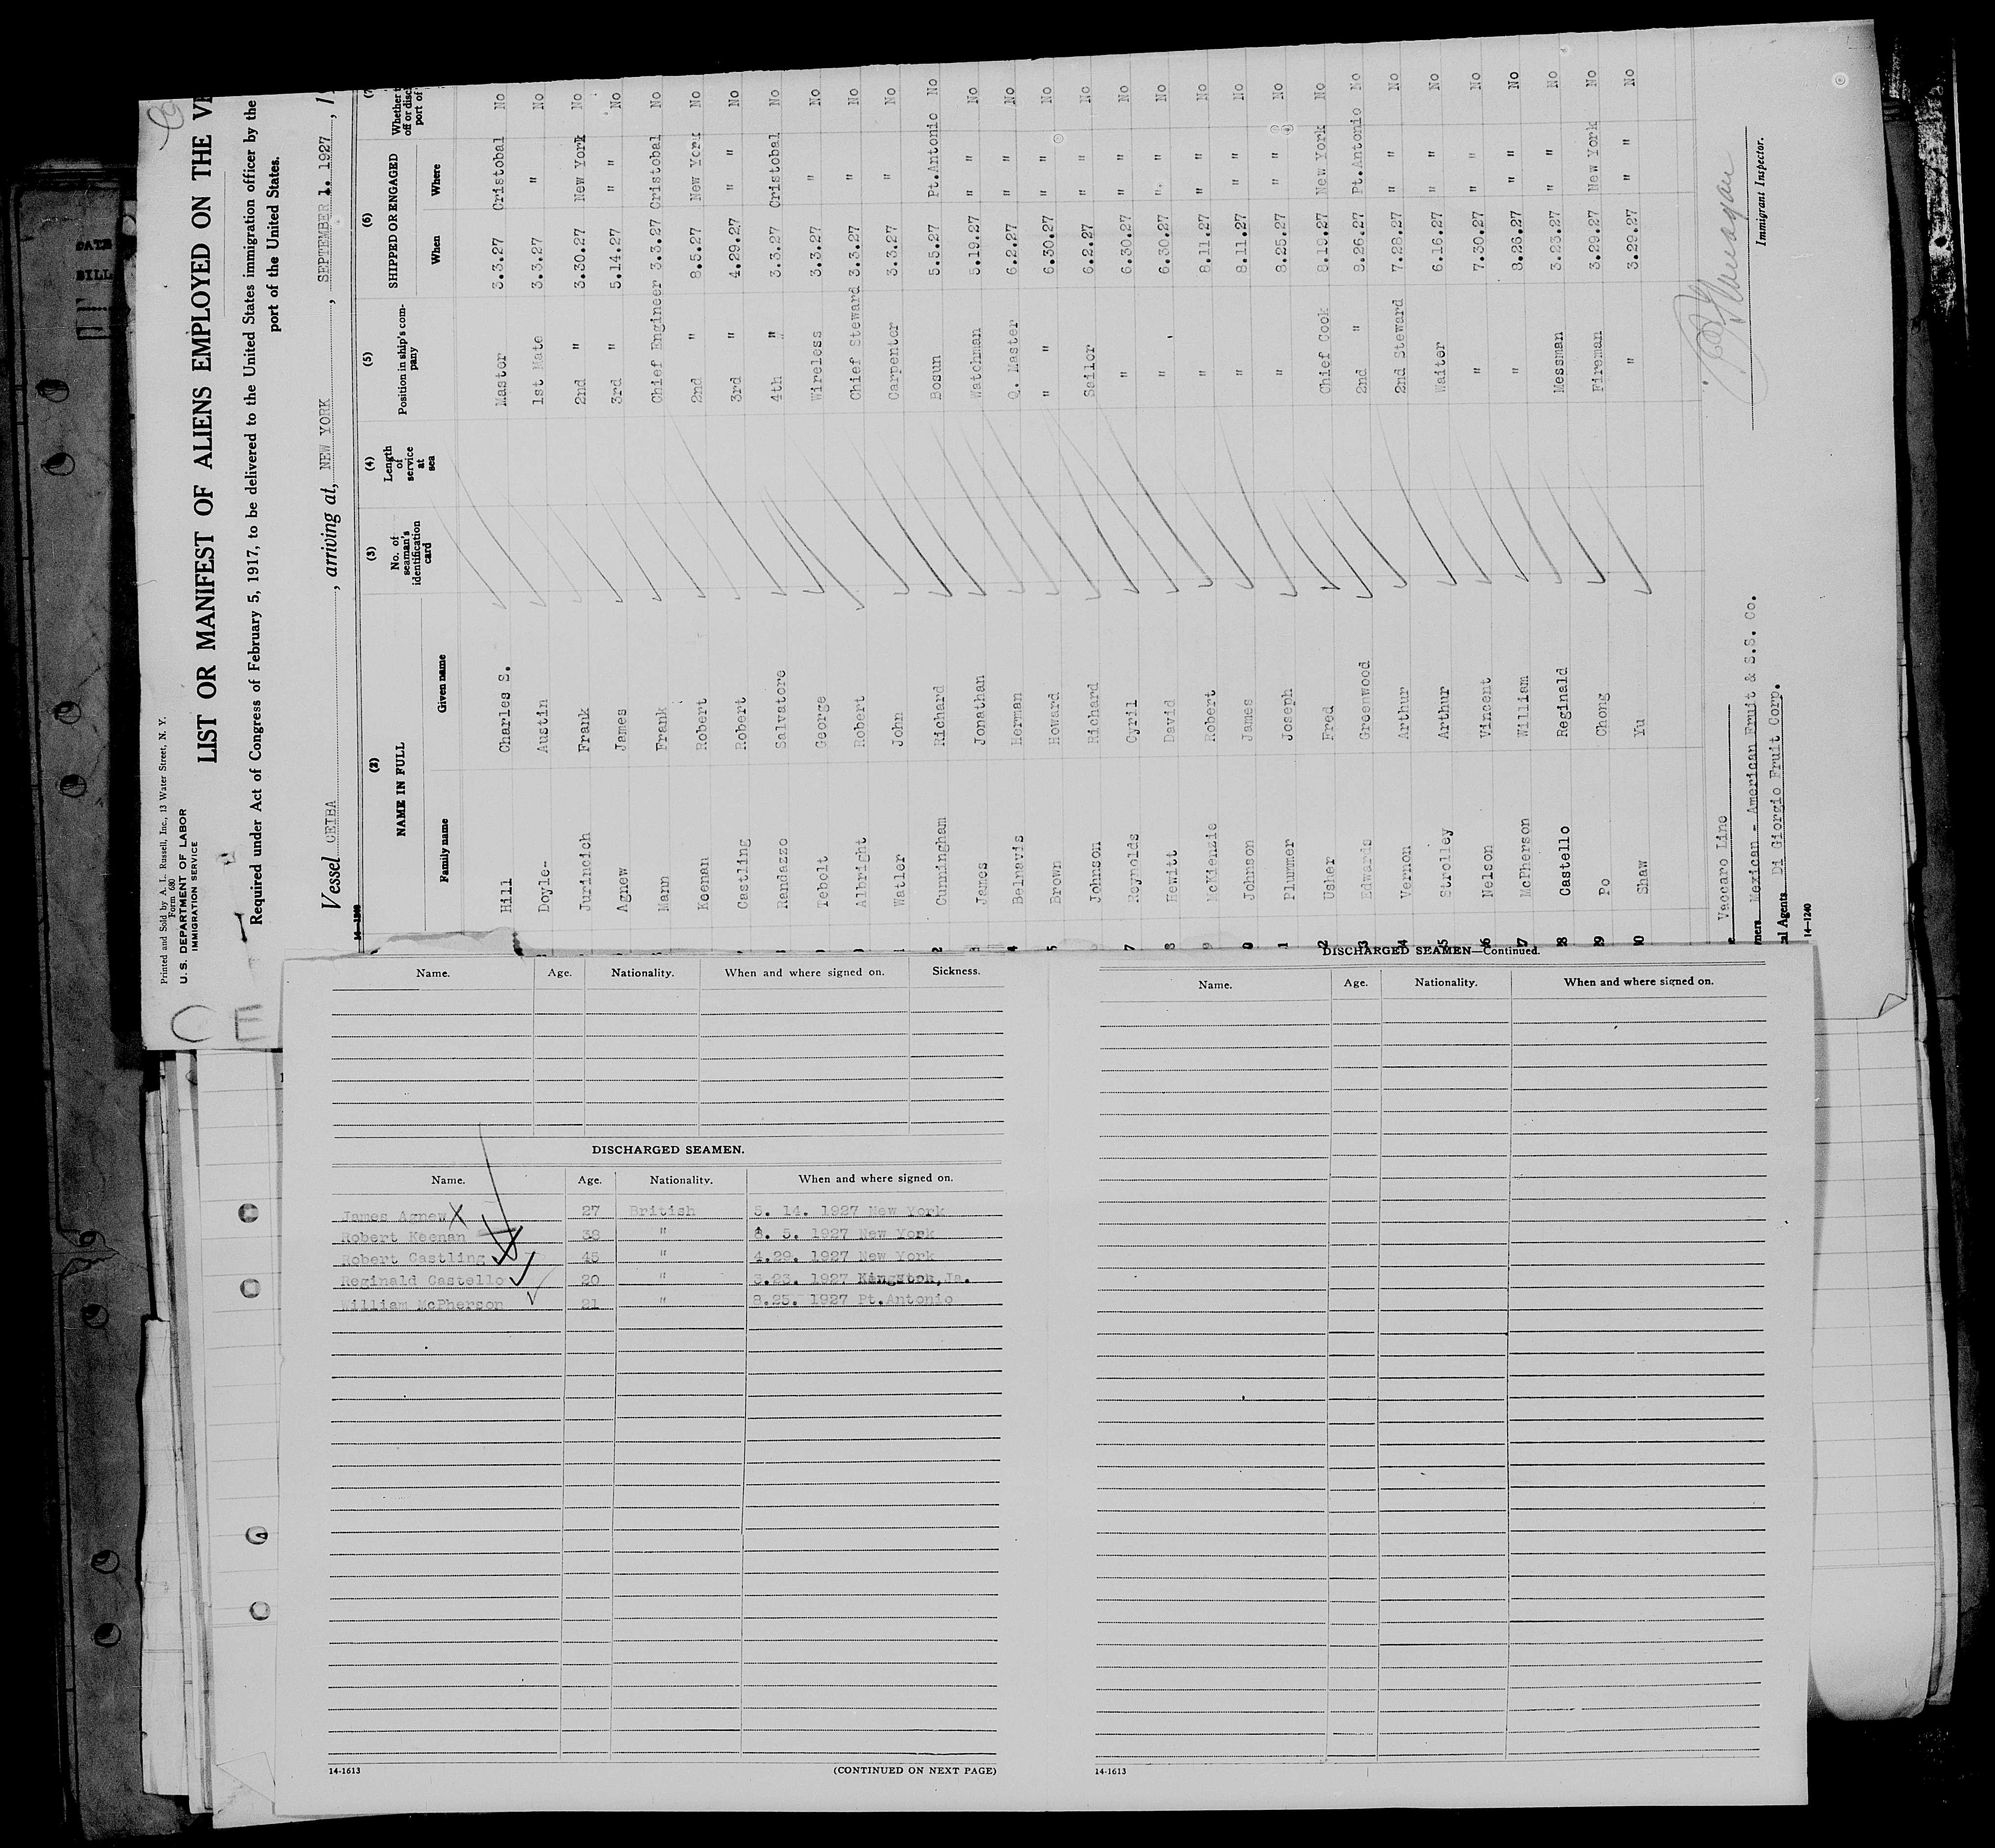 Printed and Sold by A. L. Russell, Inc., 13 Water Street, N. Y.
Form 680
U. S. DEPARTMENT OF LABOR
IMMIGRATION SERVICE
LIST OR MANIFEST OF ALIENS EMPLOYED ON THE
Required under Act of Congress of February 5, 1917, to be delivered to the United States immigration officer by the
port of the United States.
Vessel CEIBA, arriving at, NEW YORK, SEPTEMBER 1. 1927, 1
14-1240
(2) (3) (4) (5) (6)
NAME IN FULL No. of seaman's identification card Length of service at sea Position in ship's company SHIPPED OR ENGAGED Whether
off or disc
port of
Family name Given name When Where
Hill Charles S. Master 3.3.27 Cristobal No
Doyle- Austin 1st Mate 3.3.27 " No
Jurincich Frank 2nd " 3.30.27 New York No
Agnew James 3rd " 5.14.27 " " No
Mann Frank Chief Engineer 3.3.27 Cristobal No
Keenan Robert 2nd " 8.5.27 New York No
Castling Robert 3rd " 4.29.27 " " No
Randazzo Salvatore 4th " 3.3.27 Cristobal No
Tebolt George Wireless 3.3.27 " No
Albright Robert Chief Steward 3.3.27 " No
Watler John Carpenter 3.3.27 " No
2 Cunningham Richard Bosun 5.5.27 Pt.Antonio No
James Jonathan Watchman 5.19.27 " " No
4 Belnavis Herman Q. Master 6.2.27 " " No
5 Brown Howard " " 6.30.27 " " No
Johnson Richard Sailor 6.2.27 " " No
7 Reynolds Cyril " 6.30.27 " " No
8 Hewitt David " 6.30.27 " " No
9 McKienzie Robert " 8.11.27 " " No
0 Johnson James " 8.11.27 " " No
1 Plummer Joseph " 8.25.27 " " No
22 Usher Fred Chief Cook 8.19.27 New York No
23 Edwards Greenwood 2nd " 8.26.27 Pt.Antonio No
24 Vernon Arthur 2nd Steward 7.28.27 " " No
25 Strolley Arthur Waiter 6.16.27 " " No
26 Nelson Vincent " 7.30.27 " " No
27 McPherson William " 8.26.27 " " No
28 Castello Reginald Messman 3.23.27 " " No
29 Po Chong Fireman 3.29.27 New York No
30 Shaw Yu " 3.29.27 " " No
Vaccaro Line
Mexican - American Fruit & S.S. Co.
al Agents Di Giorgio Fruit Corp.
14-1240
Immigrant Inspector.
CE
Name. Age. Nationality. When and where signed on. Sickness.
DISCHARGED SEAMEN.
Name. Age. Nationality. When and where signed on.
James Agnew X 27 British 5. 14. 1927 New York
Robert Keenan 38 " 8. 5. 1927 New York
Robert Castling 45 " 4.29. 1927 New York
Reginald Castello 20 " 3.23. 1927 Kingston,Ja.
William McPherson 21 " 8.25. 1927 Pt.Antonio
14-1613 (CONTINUED ON NEXT PAGE)
DISCHARGED SEAMEN—Continued.
Name. Age. Nationality. When and where signed on.
14-1613